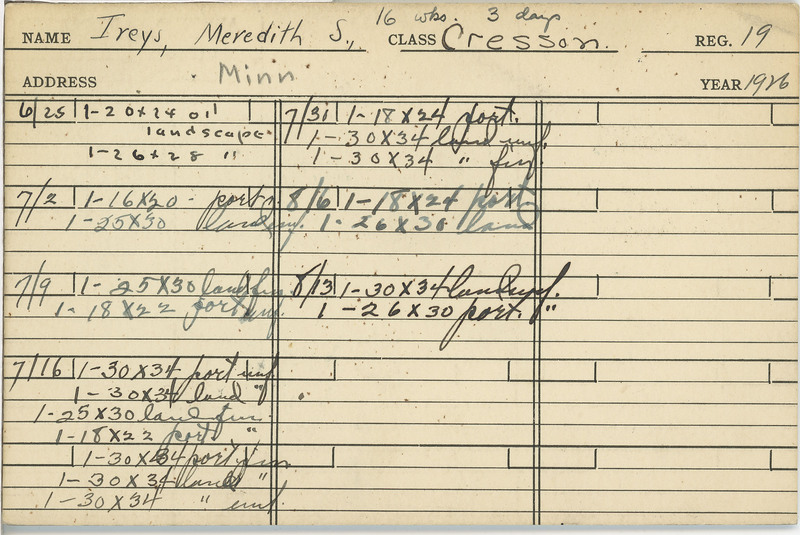 16 wks. 3 days
NAME Ireys, Meredith S., CLASS Cresson. REG. 19
ADDRESS Minn YEAR 1926
6/25 1-20x24 oil
landscape
1-26x28 "
7/2 1-16x20 - port
1-25x30
7/9 1-25x30 land
1-18x22 port unf.
7/16 1-30x34 port unf
1-30x34 land "
1-25x30 land fin
1-18x22 port "
1-30x34 port fin
1-30x34 land "
1-30x34 " unf.
7/31 1-18x24 port.
1-30x34 land unf.
1-30x34 " fin.
8/6 1-18x24 port
1-26x30 land
8/13 1-30x34 land unf.
1-26x30 port. "